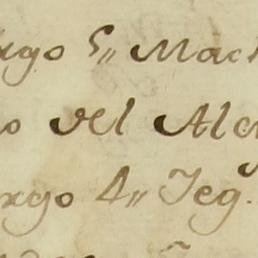 rgo 5,, Mach
o del Alc
rgo 4,, Jeg.